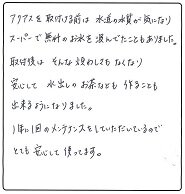 アクアスを取付ける前は 水道の水質が気になり
スーパーで無料のお水を運んでたこともありました。
取付後は そんな煩わしさもなくなり
安心して 水出しのお茶なども 作ることも
出来るようになりました。
1年に1回のメンテナンスをしていただいているので
とても安心して使ってます。